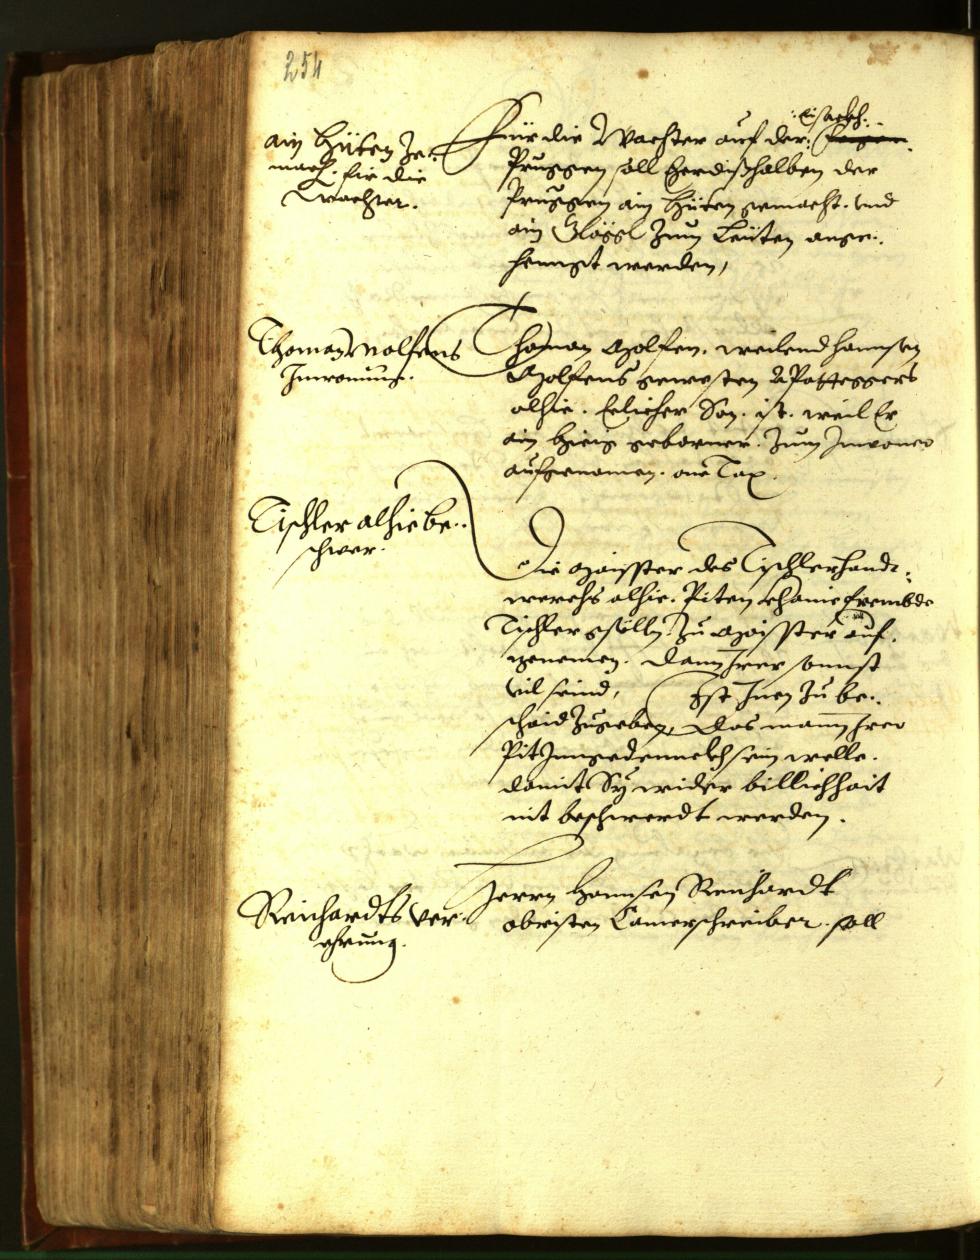 254
ain Hüten ze
mach. für die
Wachter.
Für die Wachter auf der
:Eisackh:
Pruggen soll herdißhalben der
Pruggen ain Hüten gemacht. vnd
ain Glöggl zum Leüten ange:
henngt werden,
Thoman Wolfens
Inwonung.
Thoman Wolfen. weilend Hannsen
Wolfens gewesten
alhie. Eelicher Son. ist. weil Er
ain hieig geborner. zum Inwoner
aufgenomen. one Tax.
Tischler alhie be:
schwer.
Die Maisster des Tischlerhandt:
werchs alhie. Piten khaine frembde
Tischler gsölln. zu Maisster auf.
genomen. dann Irer sonnst
vil seind, Ist Inen zu be:
schaid zugeben, Das mann Irer
Pit Inngedennckh sein welle.
damit Sy wider billichhait
nit beschwerdt werden.
Reichardts ver:
ehrung.
Herrn Hannsen Reichardt
obristen Camerschreiber. soll